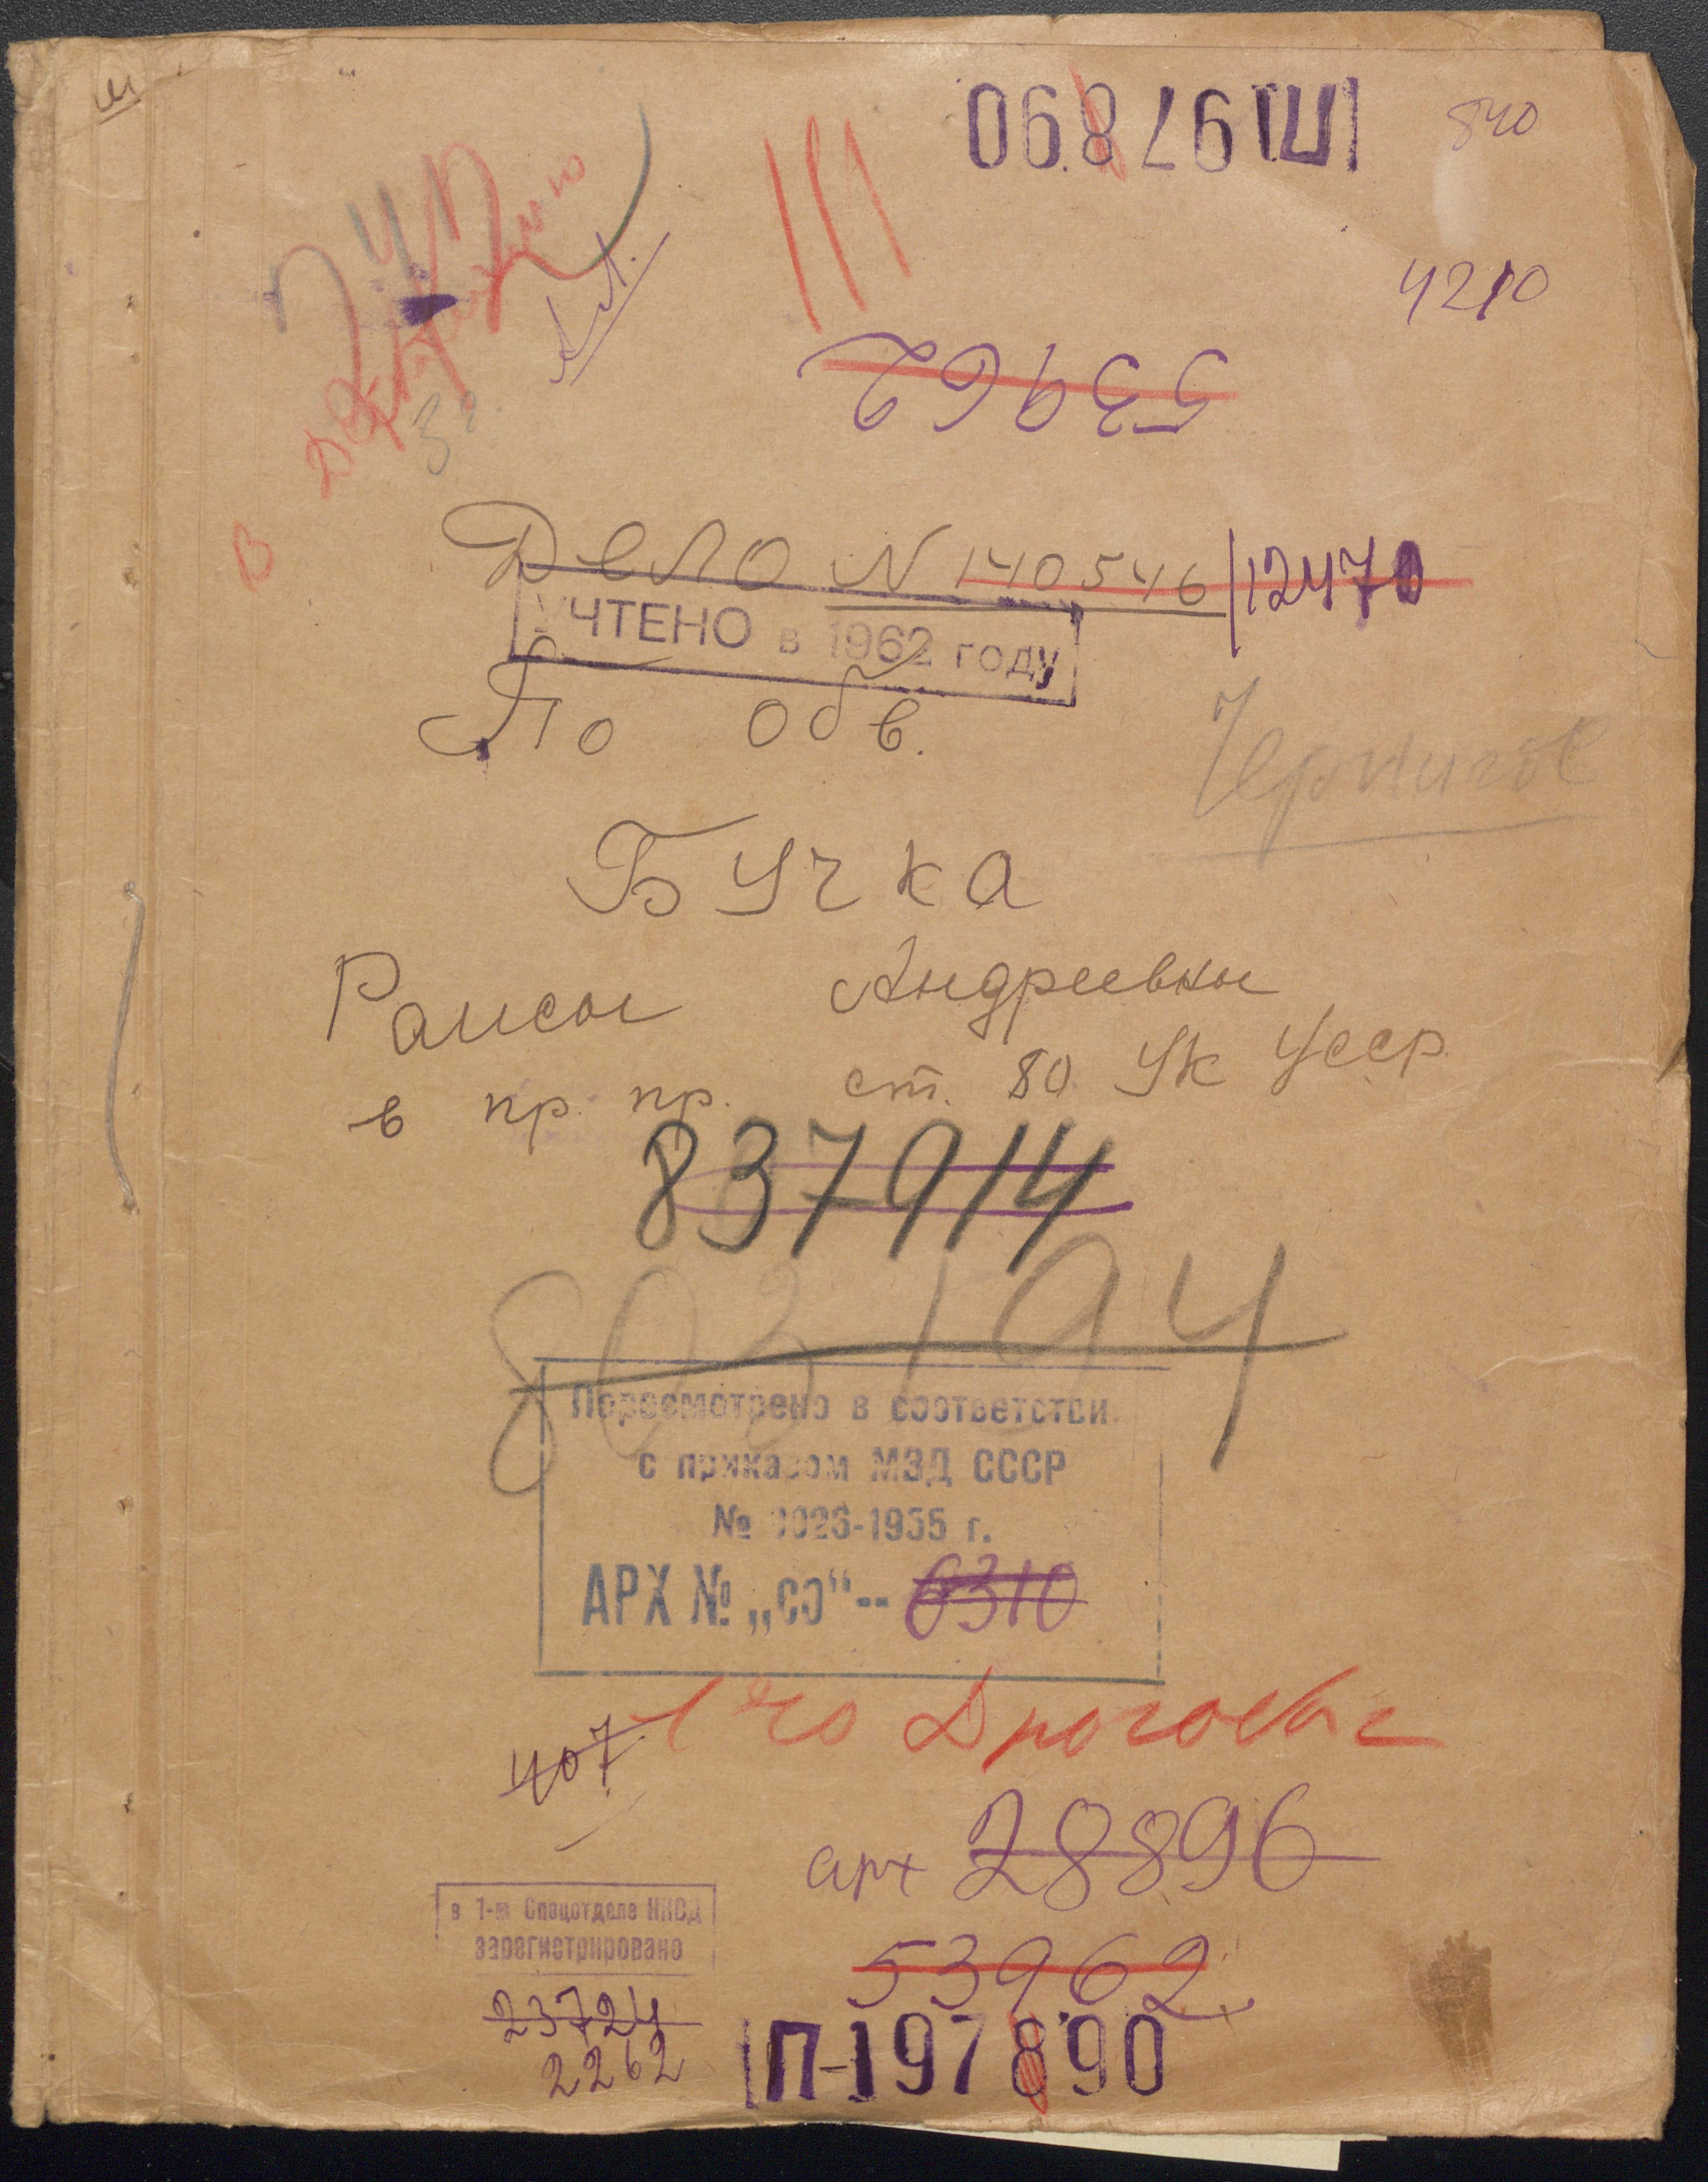 П 197890
840
4210
53962
Дело N 140546/12470
УЧТЕНО в 1962 году
По обв.
Чернигов
Бучка
Раисы Андреевны
в пр. пр. ст. 80 УК УССР.
837914
803194
Пересмотрено в соответстви
с приказом МВД СССР
№ 0026-1955 г.
АРХ № „со“-- 6310
1 го Дрогобыч
407
арх 28896
в 1-м Спецотделе НКВД
зарегистрировано
53962
23724
2262
П-197890